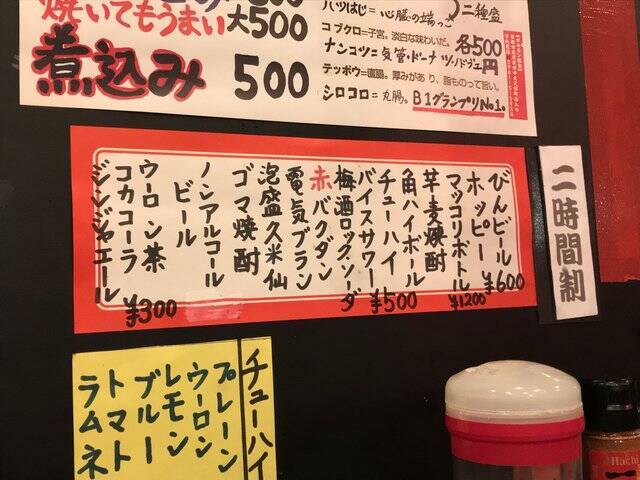 焼いてもうまい大500
煮込み 500
ハツはじ=心臓の端っこ
コブクロ=子宮。淡白な味わいだ。
ナンコツ=気管・ドーナツ・ノドヂェ
テッポウ=直腸。厚みがあり、脂ものって旨い。
シロコロ=丸腸。B1グランプリNo.1。
二種盛
各500円
二時間制
びんビール
ホッピー ¥600
マッコリボトル ¥1200
芋麦焼酎
角ハイボール
チューハイ ¥500
バイスサワー
梅酒ロック、ソーダ
赤バクダン
電気ブラン
泡盛久米仙
ゴマ焼酎
ノンアルコール
ビール
ウーロン茶
コカコーラ
ジンジャエール ¥300
チューハイ
プレーン
ウーロン
レモン
ブルー
トマト
ラムネ
Hachi